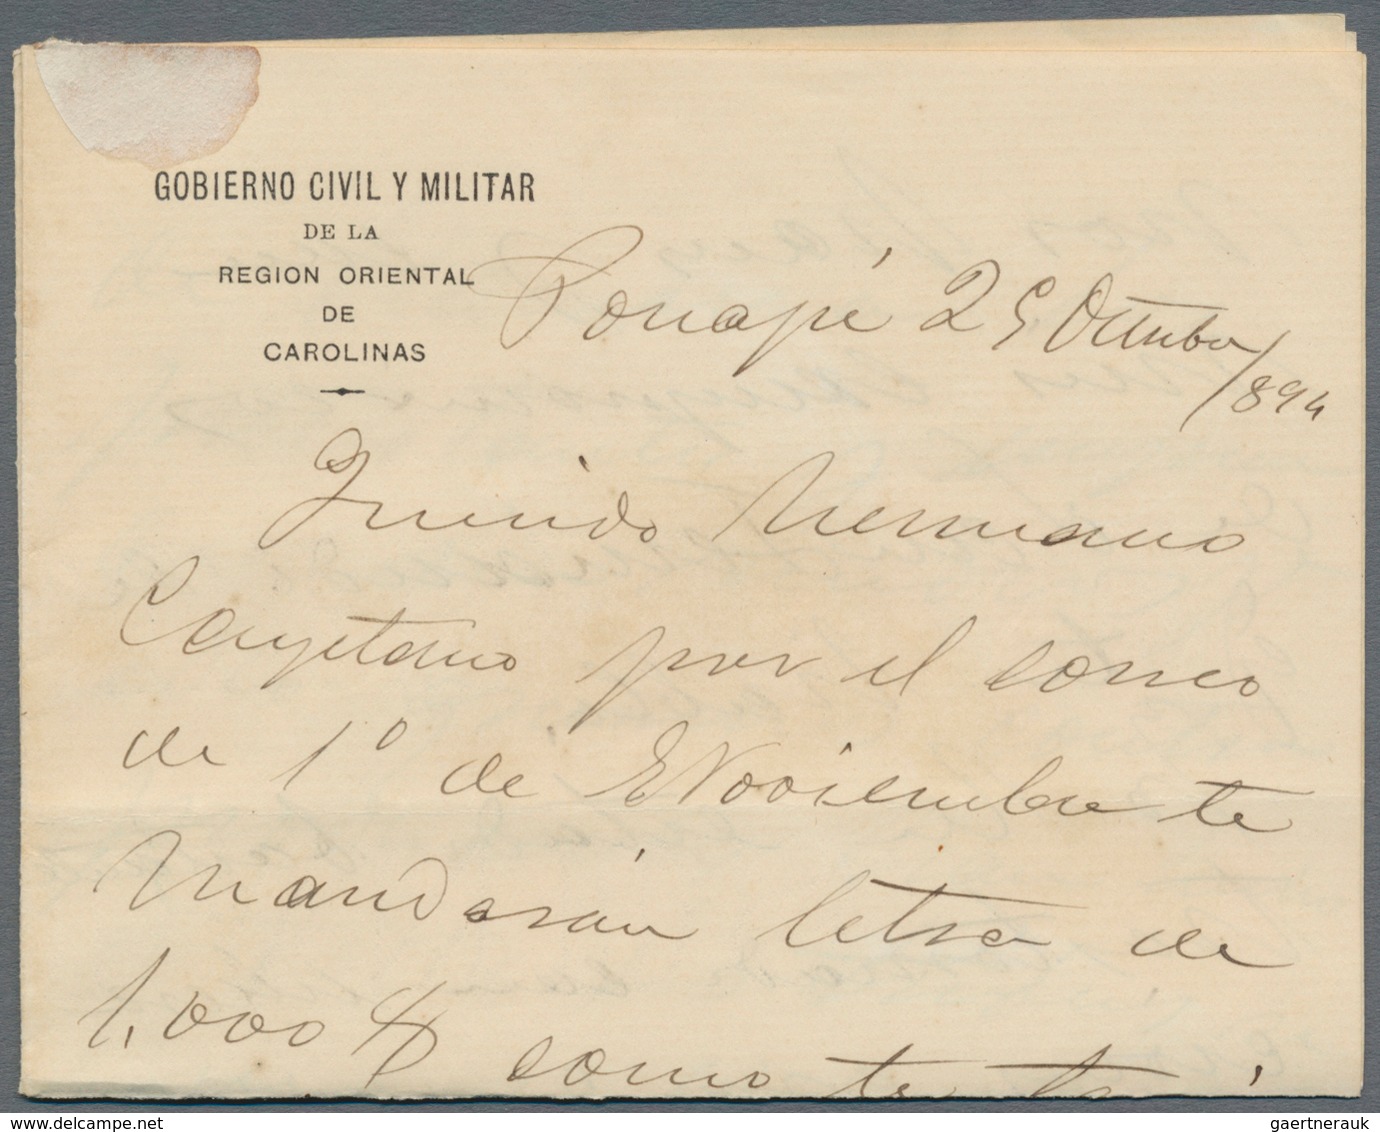 GOBIERNO CIVIL Y MILITAR
DE LA
REGION ORIENTAL
DE
CAROLINAS
Ponapé 25 Octubre
/894
Querido Hermano
Cayetano por el correo
de 1º de Noviembre te
mandarán letra de
1,000 $ como te
www.delcampe.net
gaertnerauk